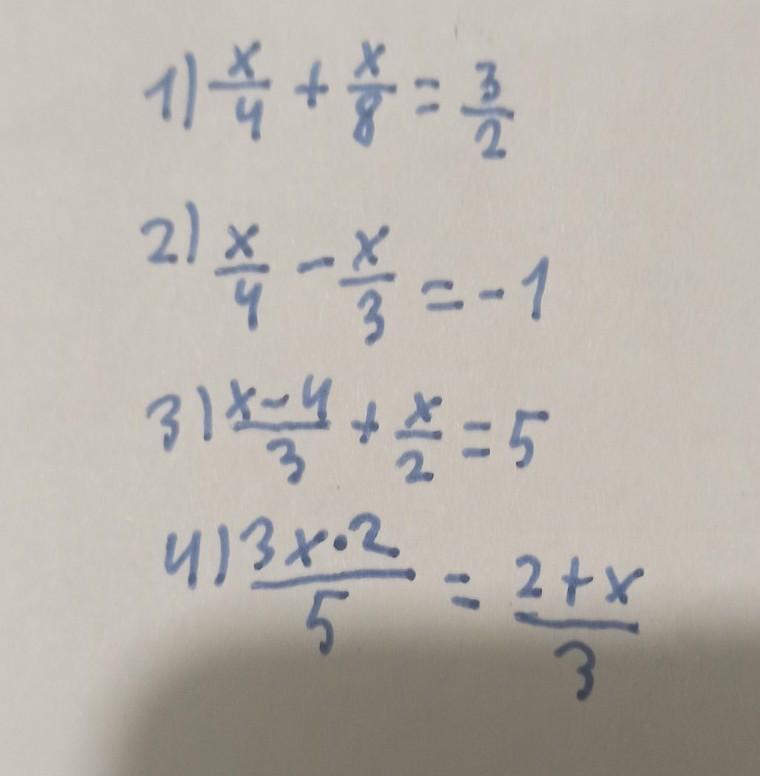 1) x/4 + x/8 = 3/2
2) x/4 - x/3 = -1
3) x-4/3 + x/2 = 5
4) 3x·2/5 = 2+x/3